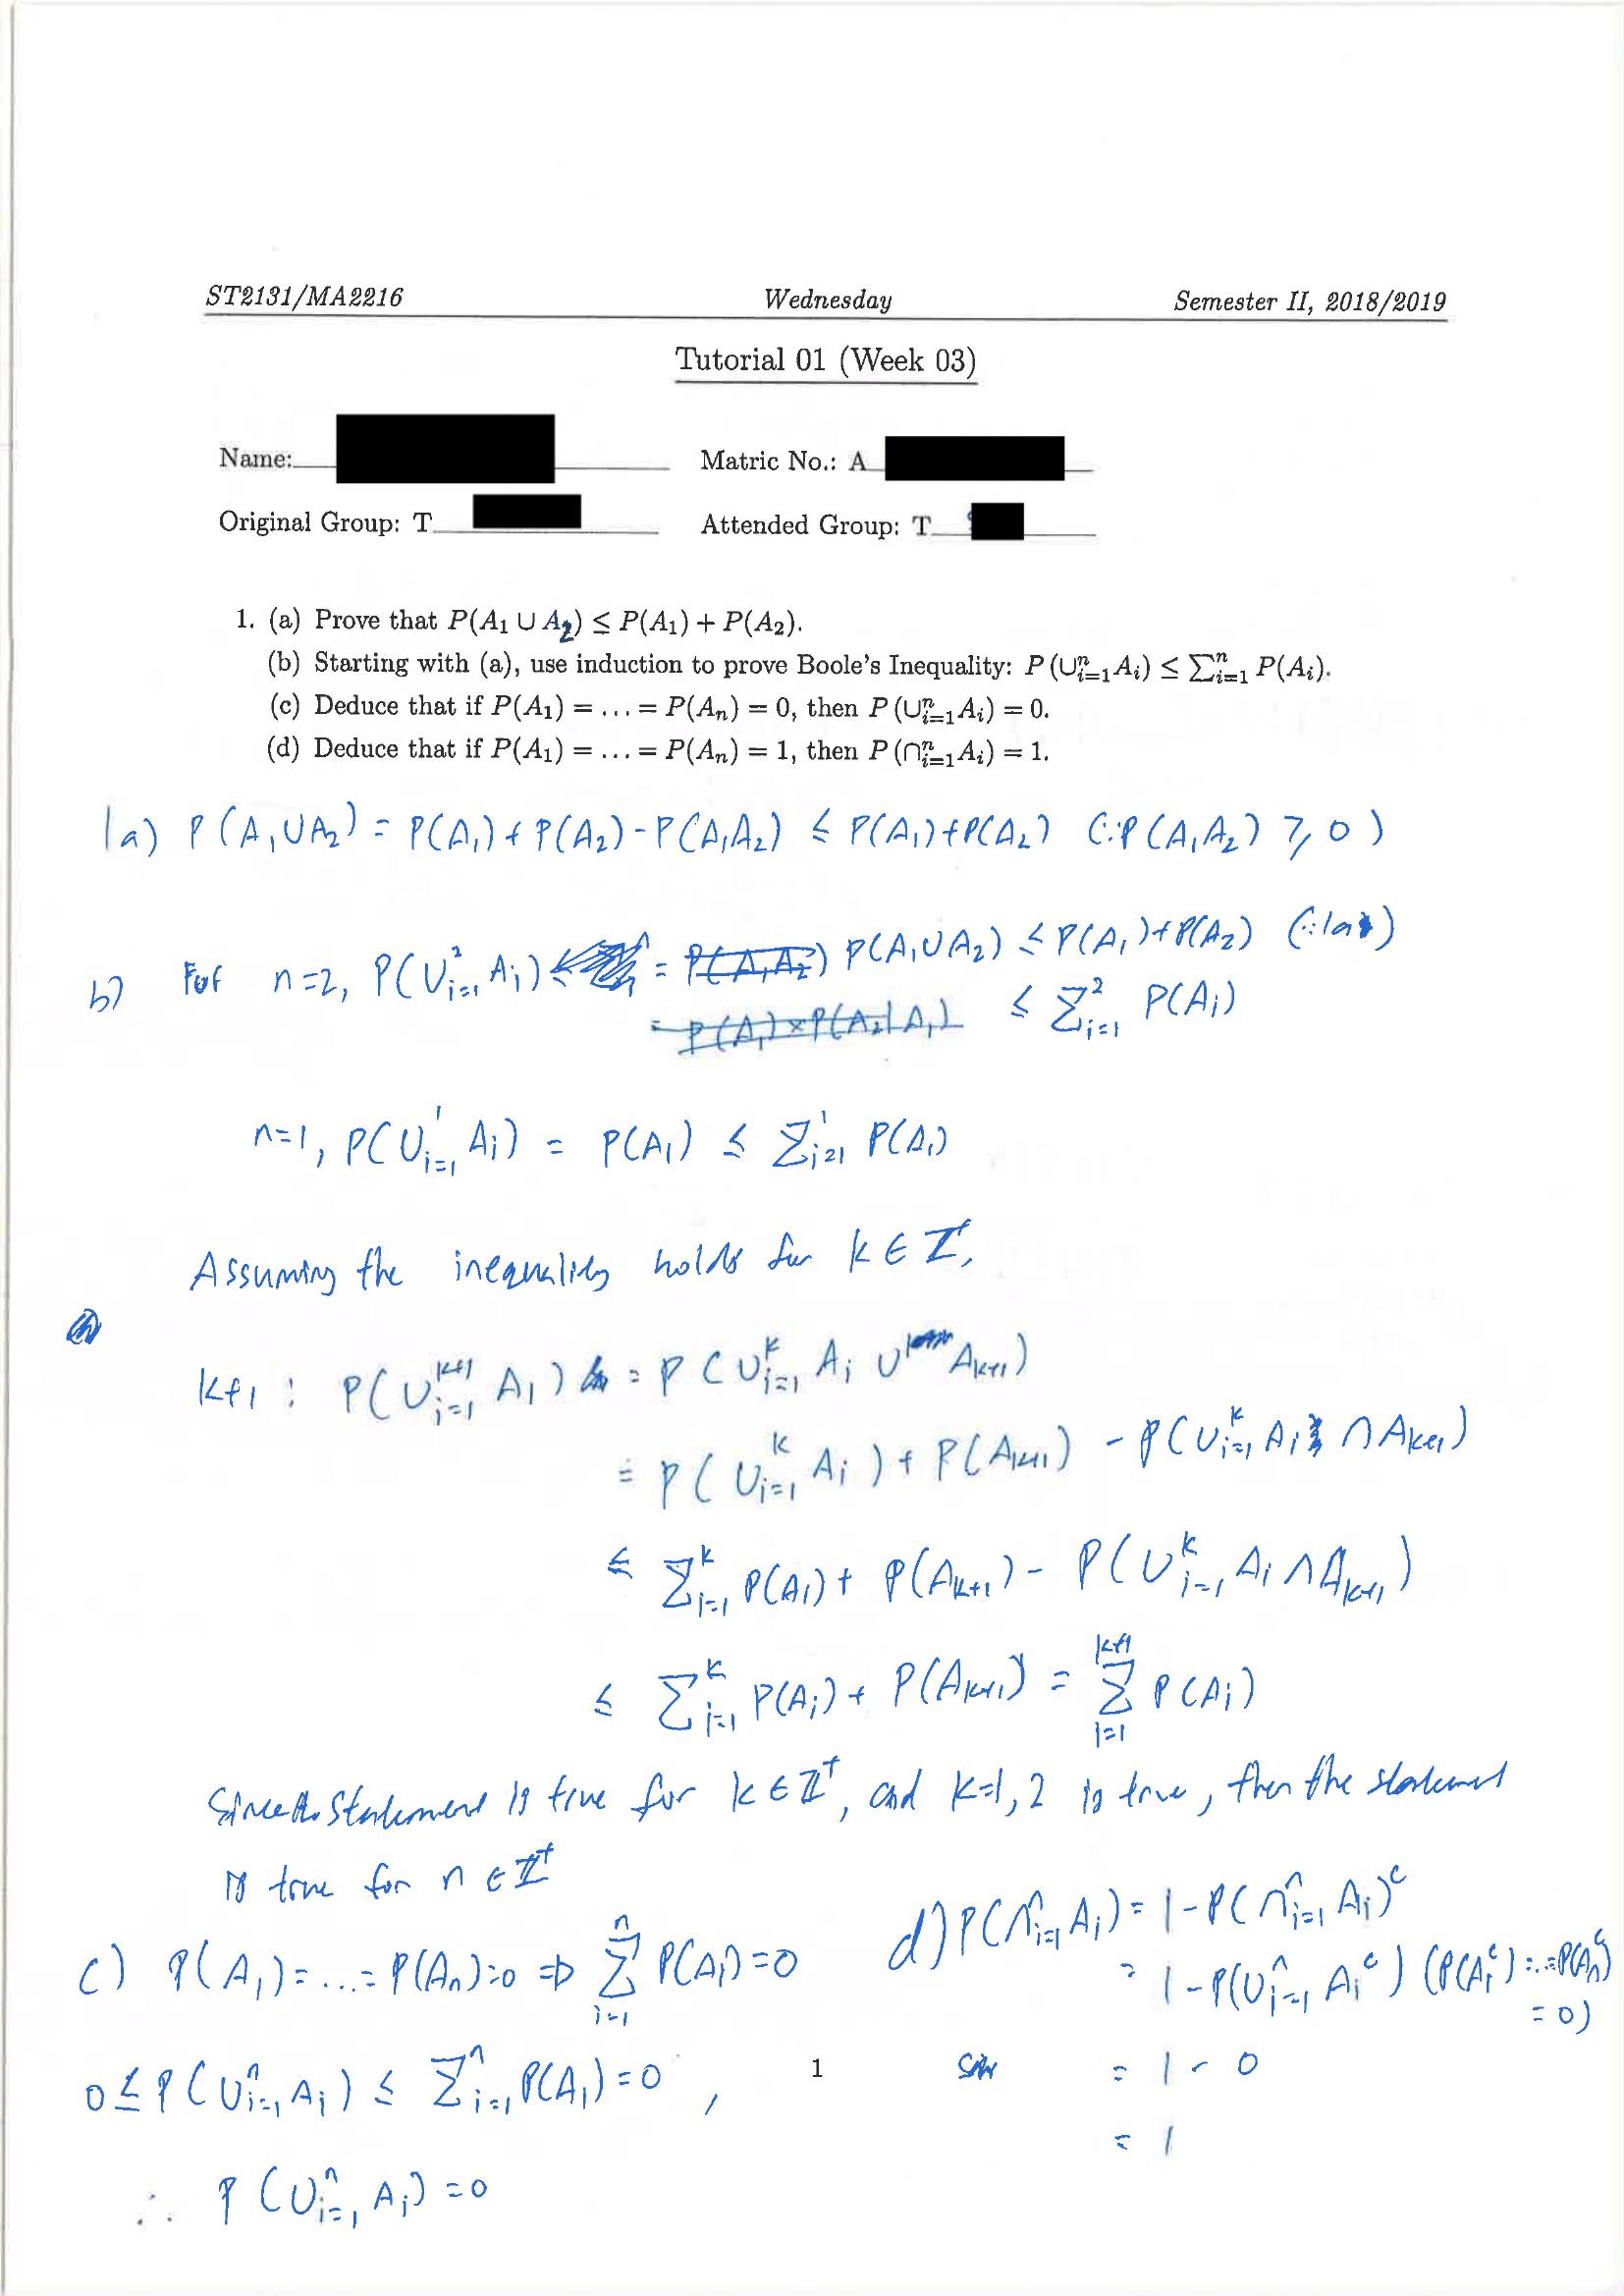 ST2131/MA2216 Wednesday Semester II, 2018/2019
Tutorial 01 (Week 03)
Name: Matric No.: A
Original Group: T Attended Group: T
1. (a) Prove that P(A₁ ∪ A₂) ≤ P(A₁) + P(A₂).
(b) Starting with (a), use induction to prove Boole's Inequality: P (∪ⁿᵢ₌₁Aᵢ) ≤ ∑ⁿᵢ₌₁ P(Aᵢ).
(c) Deduce that if P(A₁) = ... = P(Aₙ) = 0, then P (∪ⁿᵢ₌₁Aᵢ) = 0.
(d) Deduce that if P(A₁) = ... = P(Aₙ) = 1, then P (∩ⁿᵢ₌₁Aᵢ) = 1.
1a) P(A₁∪A₂) = P(A₁) + P(A₂) - P(A₁A₂) ≤ P(A₁)+P(A₂) (∵P(A₁A₂) ≥ 0)
b) For n=2, P(∪²ᵢ₌₁ Aᵢ) = P(A₁A₂) P(A₁∪A₂) ≤ P(A₁)+P(A₂) (∵1a)
= P(A₁)×P(A₂|A₁) ≤ ∑²ᵢ₌₁ P(Aᵢ)
n=1, P(∪¹ᵢ₌₁ Aᵢ) = P(A₁) ≤ ∑¹ᵢ₌₁ P(Aᵢ)
Assuming the inequality holds for k ∈ ℤ⁺,
k+1 : P(∪ᵏ⁺¹ᵢ₌₁ Aᵢ) = P(∪ᵏᵢ₌₁ Aᵢ ∪ Aₖ₊₁)
= P(∪ᵏᵢ₌₁ Aᵢ) + P(Aₖ₊₁) - P(∪ᵏᵢ₌₁ Aᵢ ∩ Aₖ₊₁)
≤ ∑ᵏᵢ₌₁ P(Aᵢ) + P(Aₖ₊₁) - P(∪ᵏᵢ₌₁ Aᵢ ∩ Aₖ₊₁)
≤ ∑ᵏᵢ₌₁ P(Aᵢ) + P(Aₖ₊₁) = ∑ᵏ⁺¹ᵢ₌₁ P(Aᵢ)
Since the statement is true for k ∈ ℤ⁺, and k=1,2 is true, then the statement
is true for n ∈ ℤ⁺
c) P(A₁) = ... = P(Aₙ) = 0 ⇒ ∑ⁿᵢ₌₁ P(Aᵢ) = 0
0 ≤ P(∪ⁿᵢ₌₁ Aᵢ) ≤ ∑ⁿᵢ₌₁ P(Aᵢ) = 0,
∴ P(∪ⁿᵢ₌₁ Aᵢ) = 0
d) P(∩ⁿᵢ₌₁ Aᵢ) = 1 - P(∩ⁿᵢ₌₁ Aᵢ)ᶜ
= 1 - P(∪ⁿᵢ₌₁ Aᵢᶜ) (P(A₁ᶜ) = ... = P(Aₙᶜ)
= 0)
= 1 - 0
= 1
1